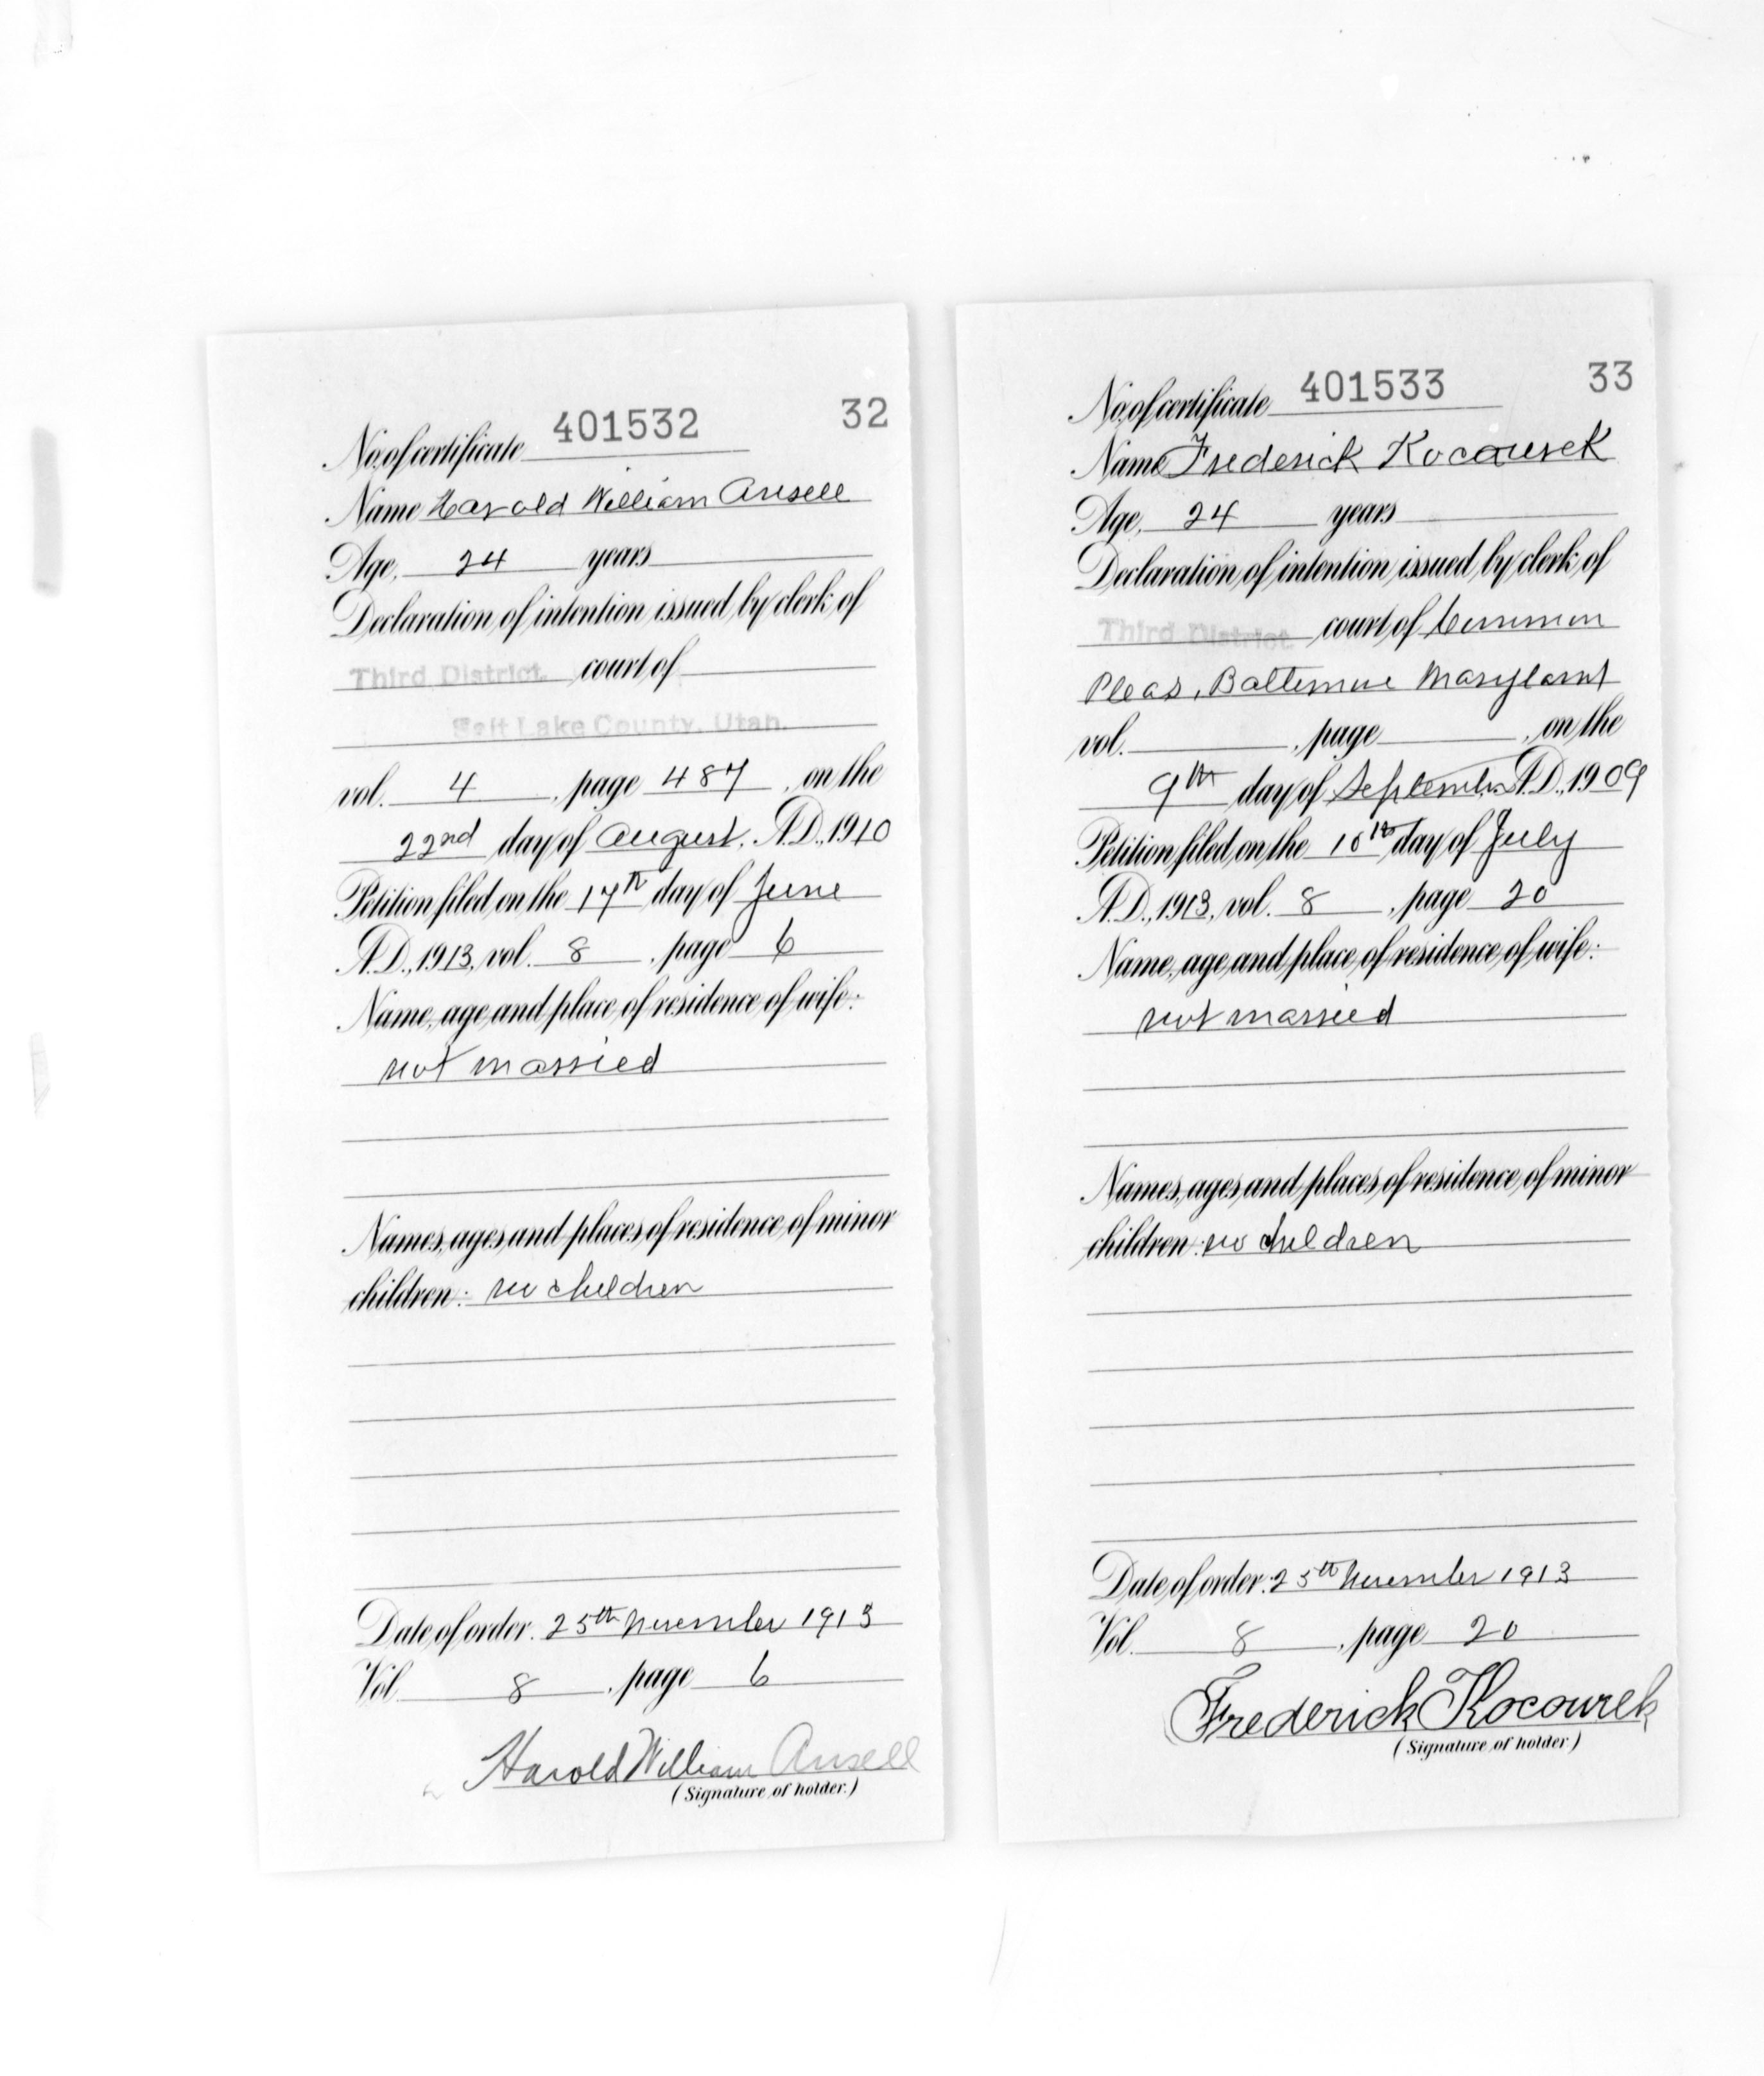 No. of certificate 401532 32
Name Harold William Ansell
Age, 24 years
Declaration of intention issued by clerk of
Third District. court of
Salt Lake County, Utah.
vol. 4, page 487, on the
22nd day of August, A.D., 1910
Petition filed on the 17th day of June
A.D., 1913, vol. 8, page 6
Name, age and place of residence of wife:
not married
Names, ages and places of residence of minor
children: no children
Date of order. 25th November 1913
Vol. 8, page 6
Harold William Ansell
(Signature of holder.)
No. of certificate 401533 33
Name Frederick Kocourek
Age, 24 years
Declaration of intention issued by clerk of
Third District court of Common
Pleas, Baltimore Maryland
vol. , page , on the
9th day of September A.D., 1909
Petition filed on the 10th day of July
A.D., 1913, vol. 8, page 20
Name, age and place of residence of wife:
not married
Names, ages and places of residence of minor
children: no children
Date of order: 25th November 1913
Vol. 8, page 20
Frederick Kocourek
(Signature of holder)